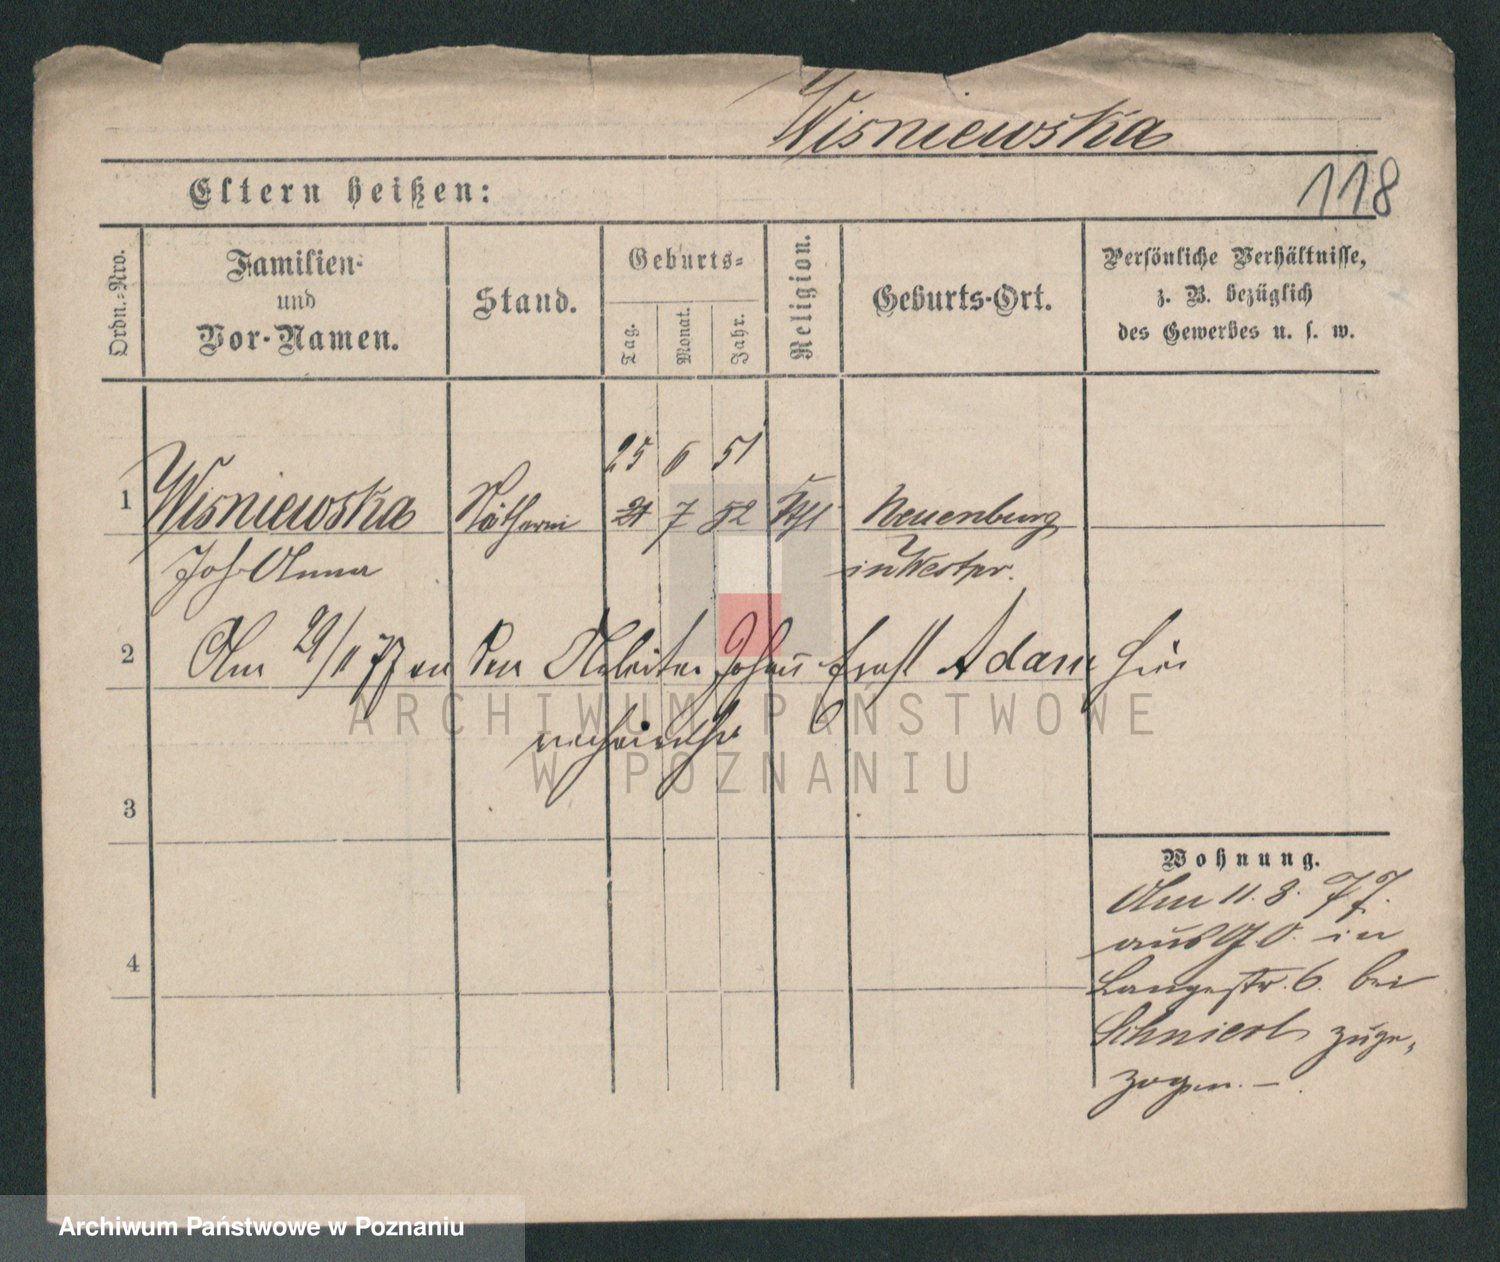 Wisniewska
118
Eltern heißen:
Ordn.-Nro.
Familien- und Vor-Namen.
Stand.
Geburts-
Tag.
Monat.
Jahr.
Religion.
Geburts-Ort.
Persönliche Verhältnisse,
z. B. bezüglich
des Gewerbes u. s. w.
25 6 51
1 Wisniewska Nätherin 21 7 52 Kth Neuenburg
Joh Anna in Westpr.
2 Am 29/11 77 an den Arbeiter Johann Ernst Adam hier
verheirathet
ARCHIWUM PAŃSTWOWE
W POZNANIU
3
Wohnung.
Am 11. 8. 77.
aus G. O. in
Langestr. 6. bei
4
zuge-
zogen. –
Archiwum Państwowe w Poznaniu